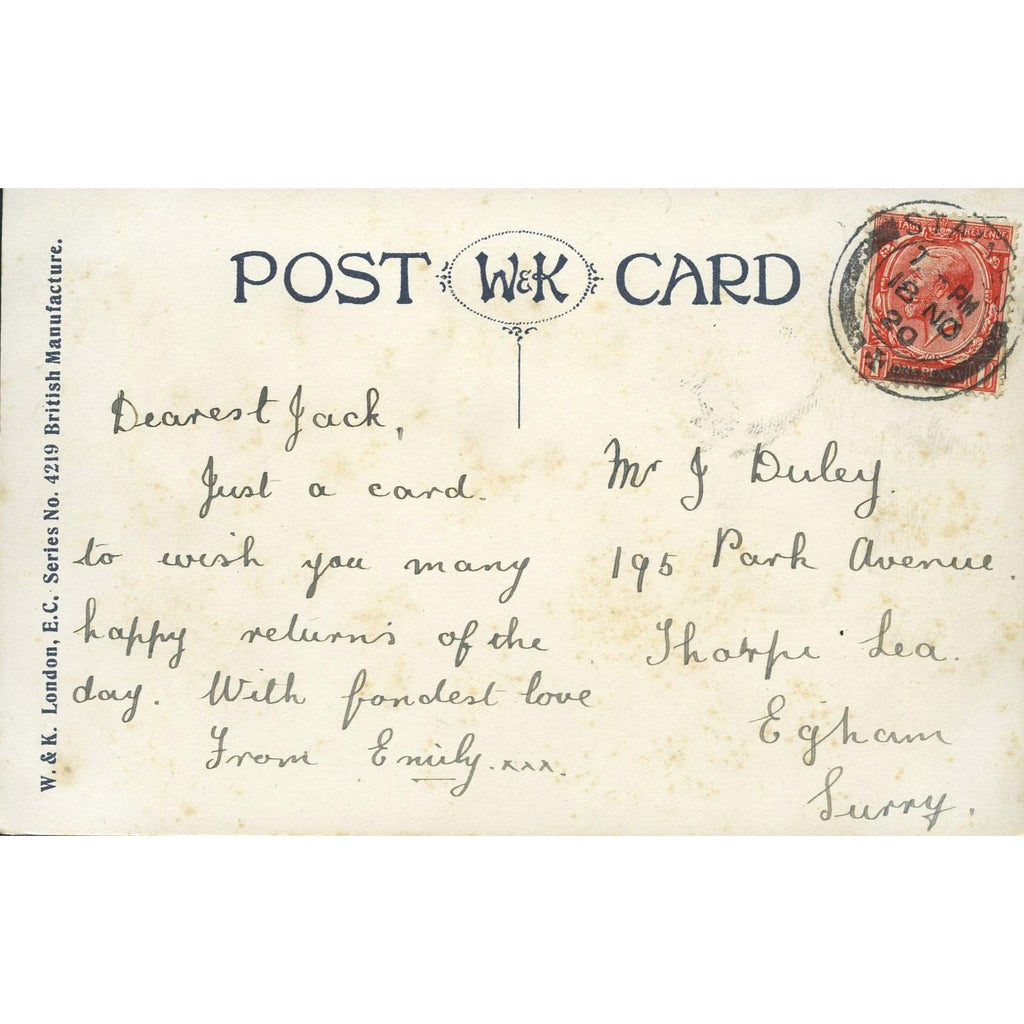 POST W&K CARD
W. & K. London, E.C. Series No. 4219 British Manufacture.
REVENUE
PM
18 NO
20
Dearest Jack,
Just a card.
to wish you many
happy returns of the
day. With fondest love
From Emily. xxx.
Mr J Duley.
195 Park Avenue.
Thorpe Lea.
Egham
Surry.